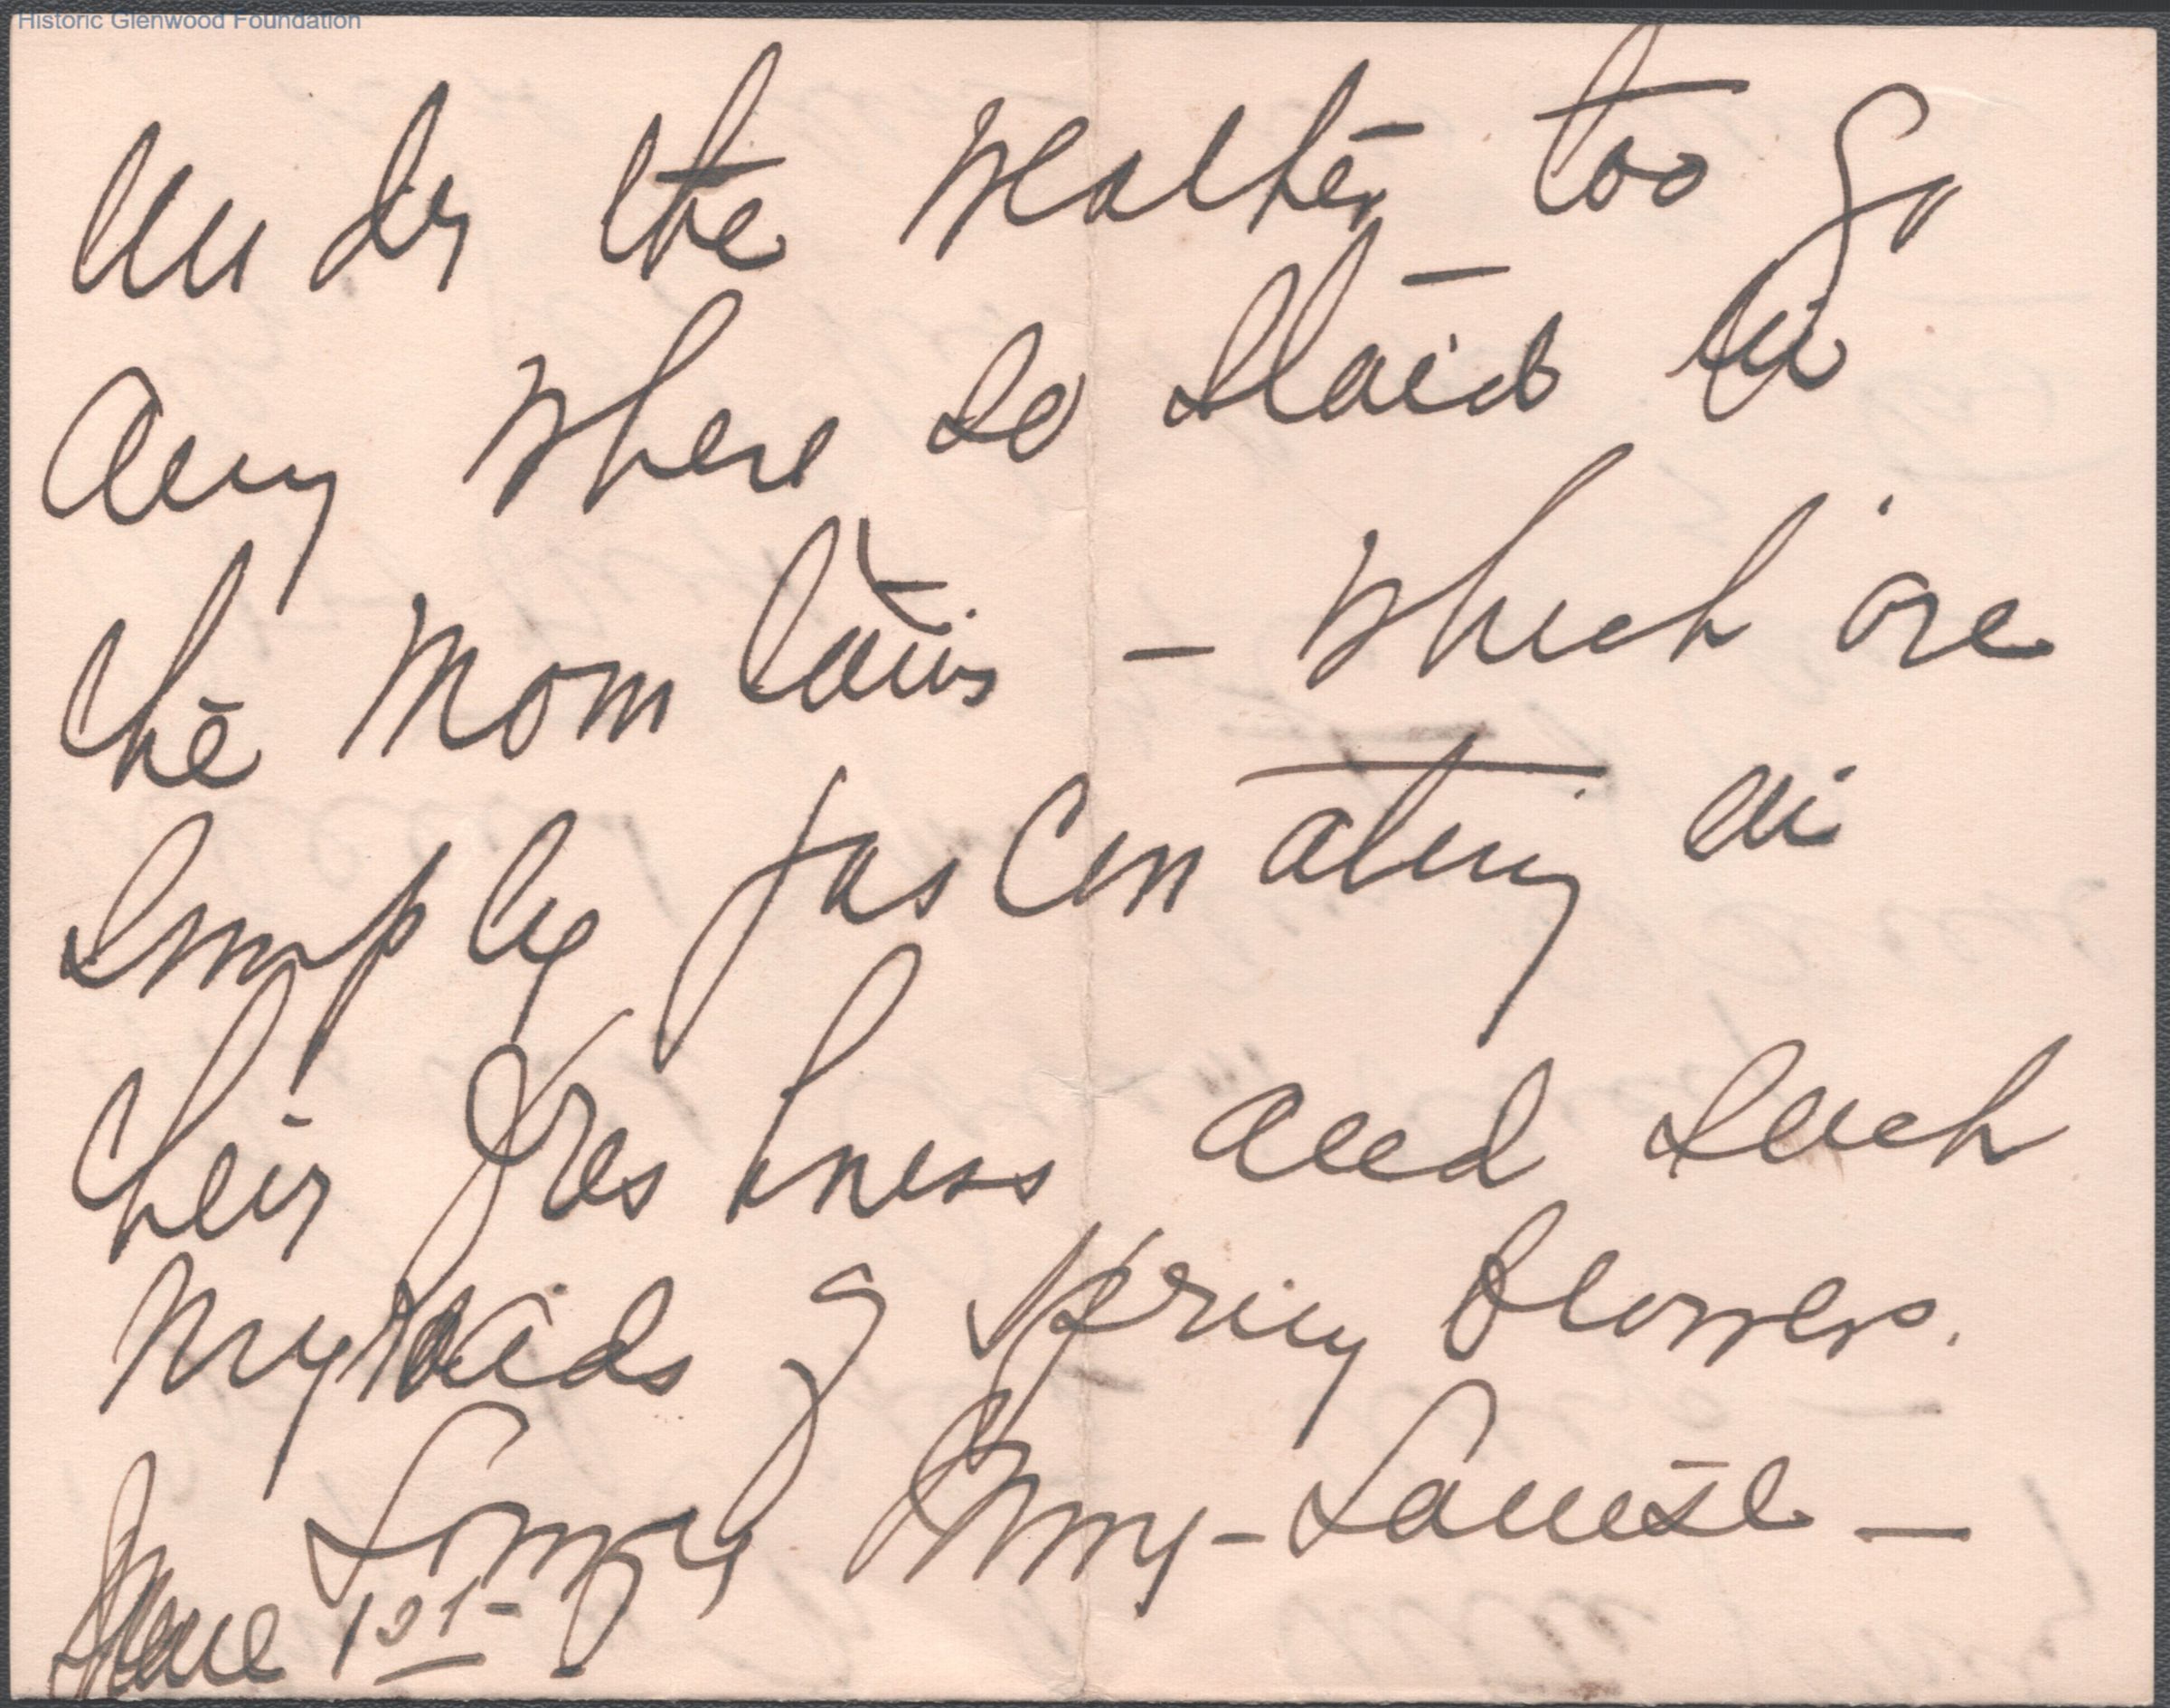 Historic Glenwood Foundation
Under the weather too go
any where so staid in
the Mountains — which are
simply fascinating in
their freshness and such
myriads of spring flowers.
Amy-Louise —
June 1st